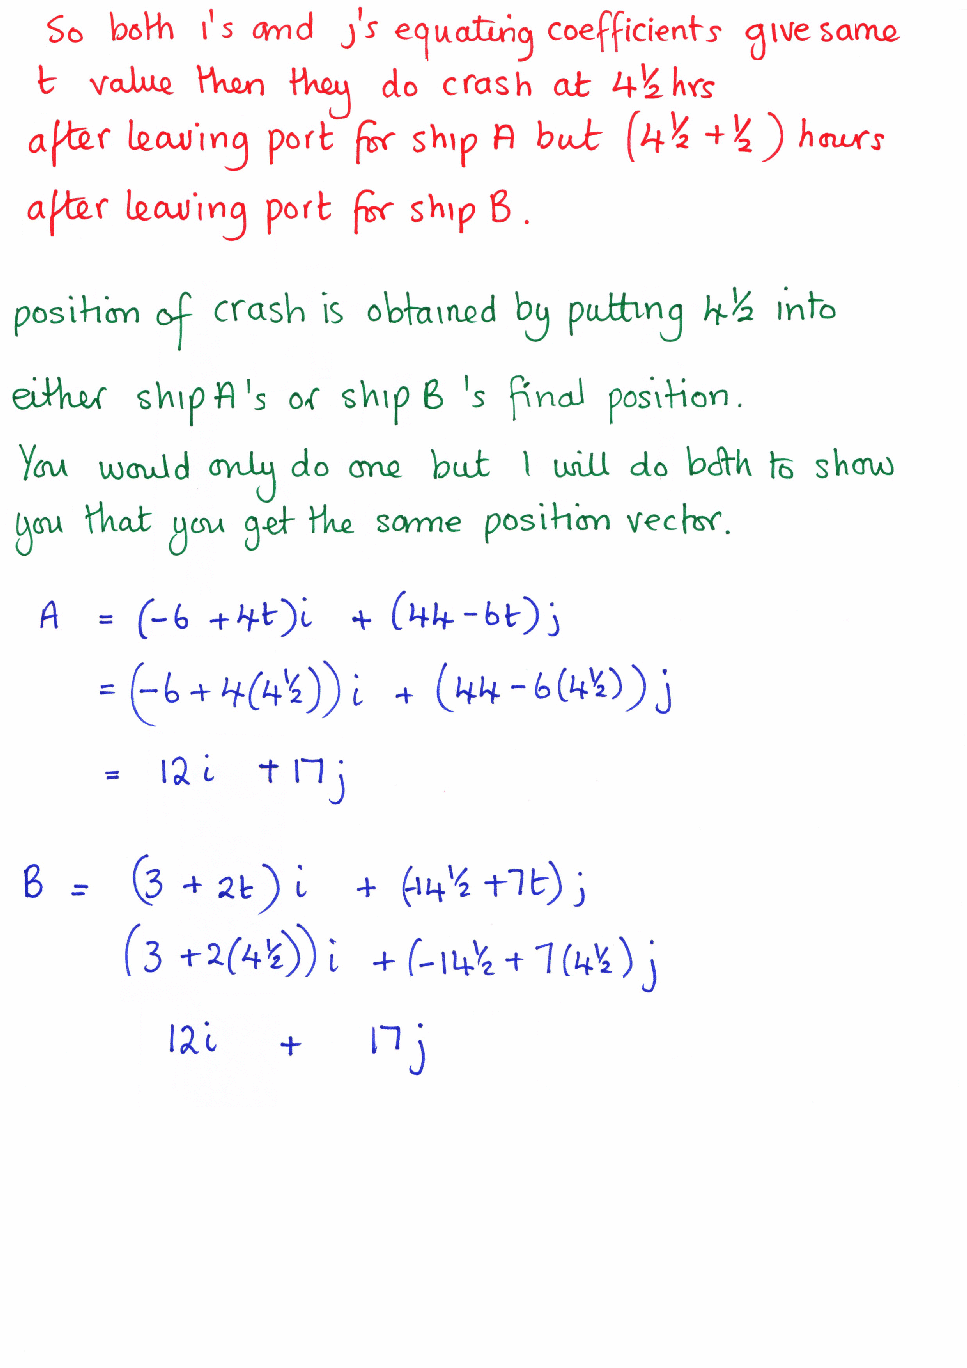 So both i's and j's equating coefficients give same
t value then they do crash at 4½ hrs
after leaving port for ship A but (4½ + ½) hours
after leaving port for ship B.
position of crash is obtained by putting 4½ into
either ship A's or ship B's final position.
You would only do one but I will do both to show
you that you get the same position vector.
A = (-6 + 4t)i + (44 - 6t)j
= (-6 + 4(4½))i + (44 - 6(4½))j
= 12i + 17j
B = (3 + 2t)i + (-14½ + 7t)j
(3 + 2(4½))i + (-14½ + 7(4½)j
12i + 17j